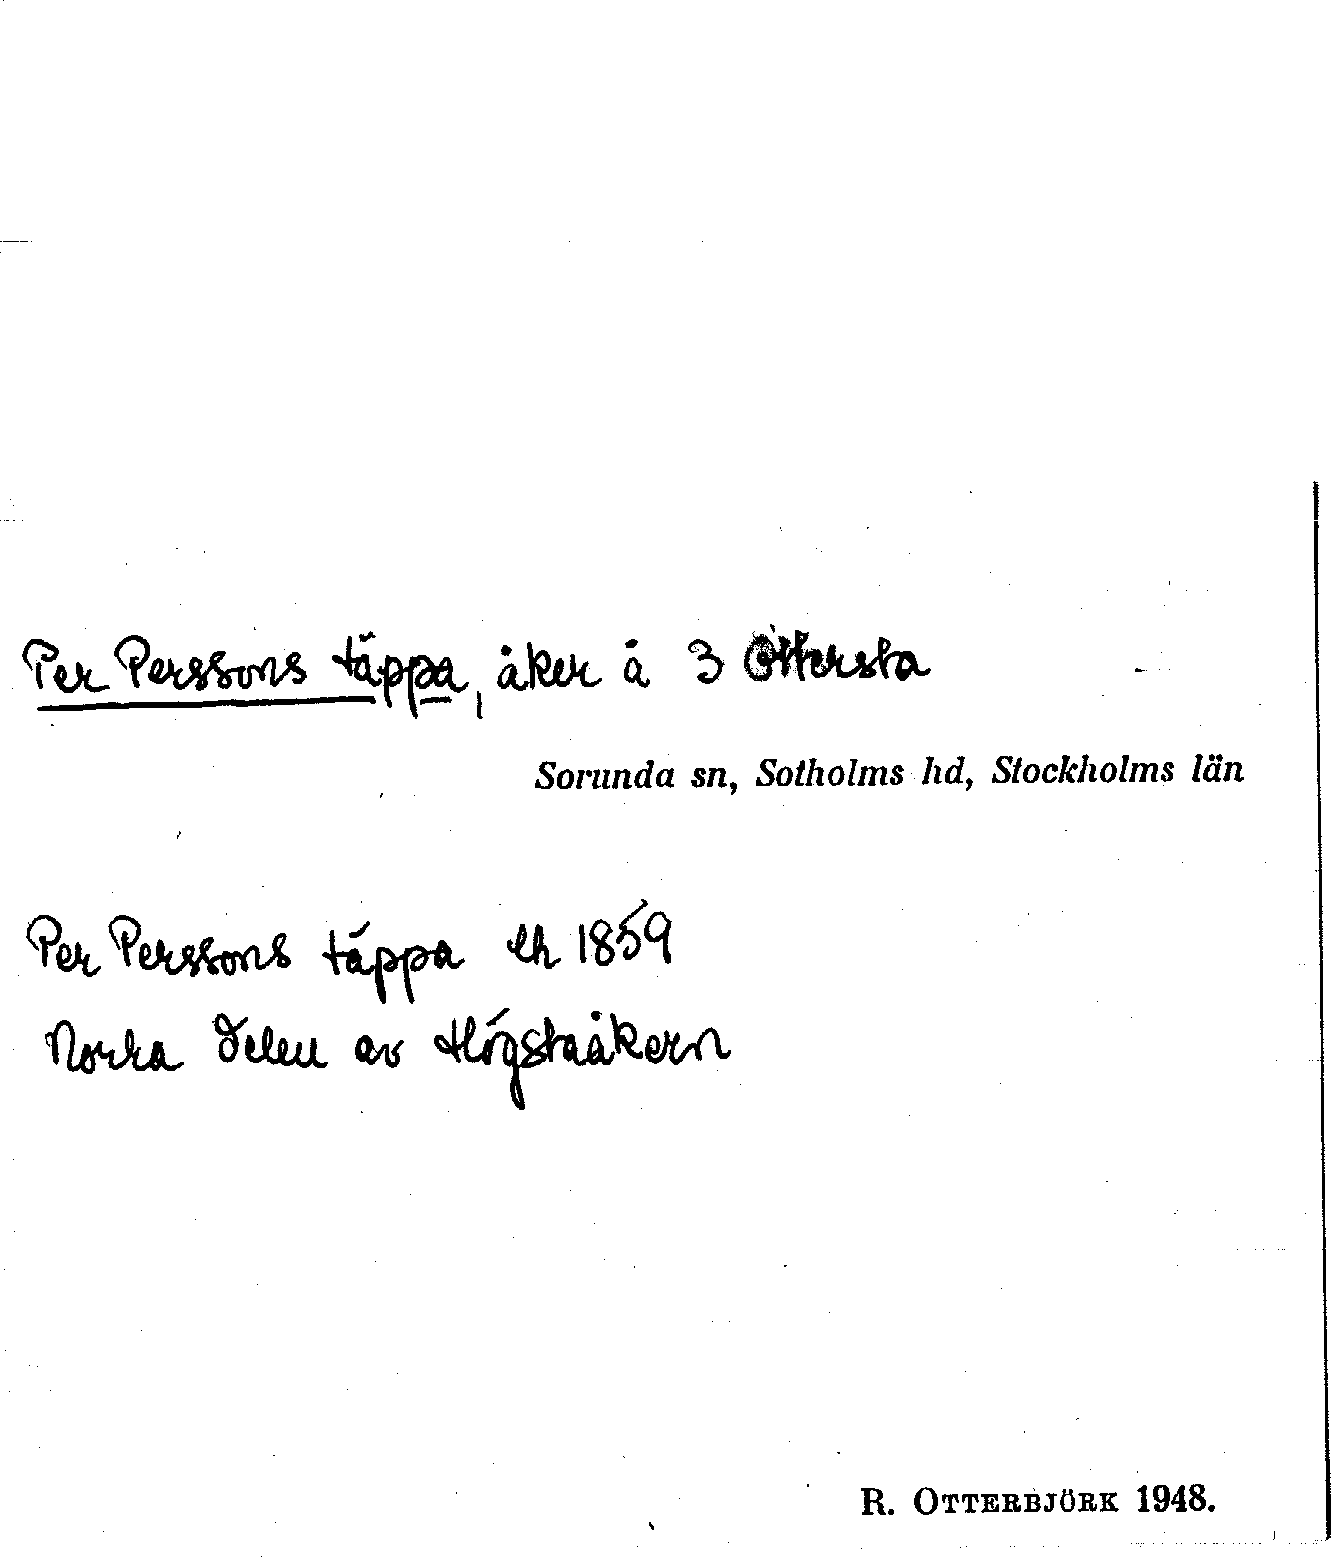 Per Perssons täppa, åker å 3 Ottersta
Sorunda sn, Sotholms hd, Stockholms län
Per Perssons täppa lh 1859
Norra delen av Högstaåkern
R. OTTERBJÖRK 1948.